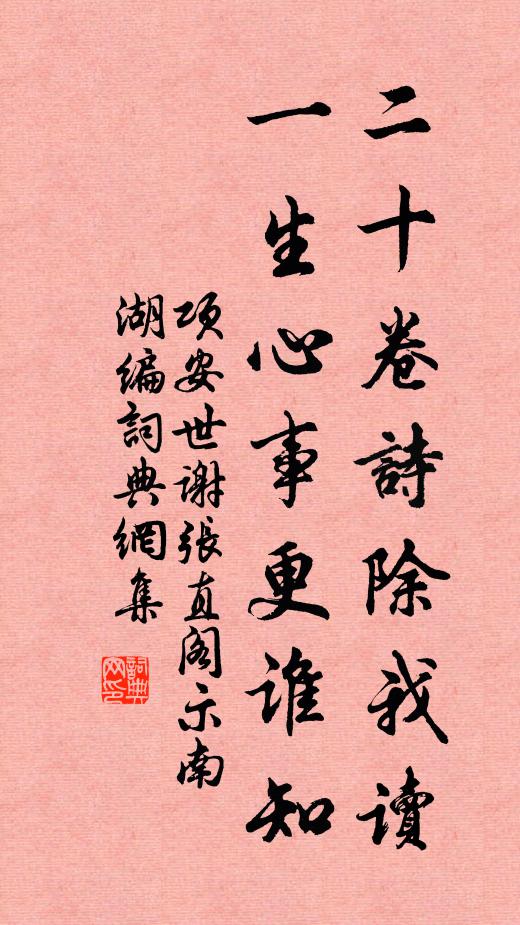 二十卷詩除我讀
一生心事更誰知
項安世謝張直閣示南
湖編詞典網集
詞典网印